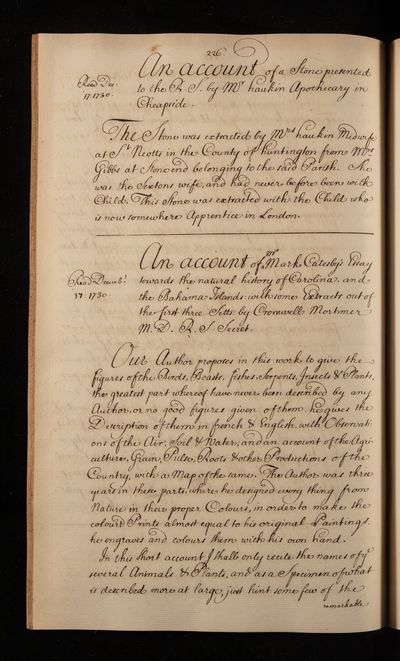 226
An account of a Stone presented
Read Dec:
17. 1730.
to the R. S. by Mr haukin Apothecary in
Cheapside.
The Stone was extracted by Mrs haukin Midwife
at St Neotts in the County of huntington from Mrs
Gibbs at Stone end belonging to the said Parish. She
was the Sextons wife, and had never before been with
Child. This Stone was extracted with the Child who
is now somewhere Apprentice in London.
An account of Mr Mark Catesby's Essay
Read Decemb.r
17: 1730
towards the natural history of Carolina, and
the Bahama Islands: with some Extracts out of
the first three Setts by Cromwell Mortimer
M. D. R. S. Secret.
Our Author proposes in this work to give the
figures of the Birds, Beasts, fishes, Serpents, Insects & Plants,
the greatest part whereof have never been described by any
Author, or no good figures given of them. he gives the
Description of them in french & English, with Observati
ons of the Air, Soil & Water, and an account of the Agri
culture, Grain, Pulse, Roots & other Productions of the
Country, with a Map of the same. The Author was three
years in these parts, where he designed every thing from
Nature in their proper Colours, in order to make the
colour'd Prints almost equal to his original Paintings.
he engraves and colours them with his own hand.
In this short account I shall only recite the names of ye
several Animals & Plants, and as a Specimen of what
is described more at large, just hint some few of the
remarkable